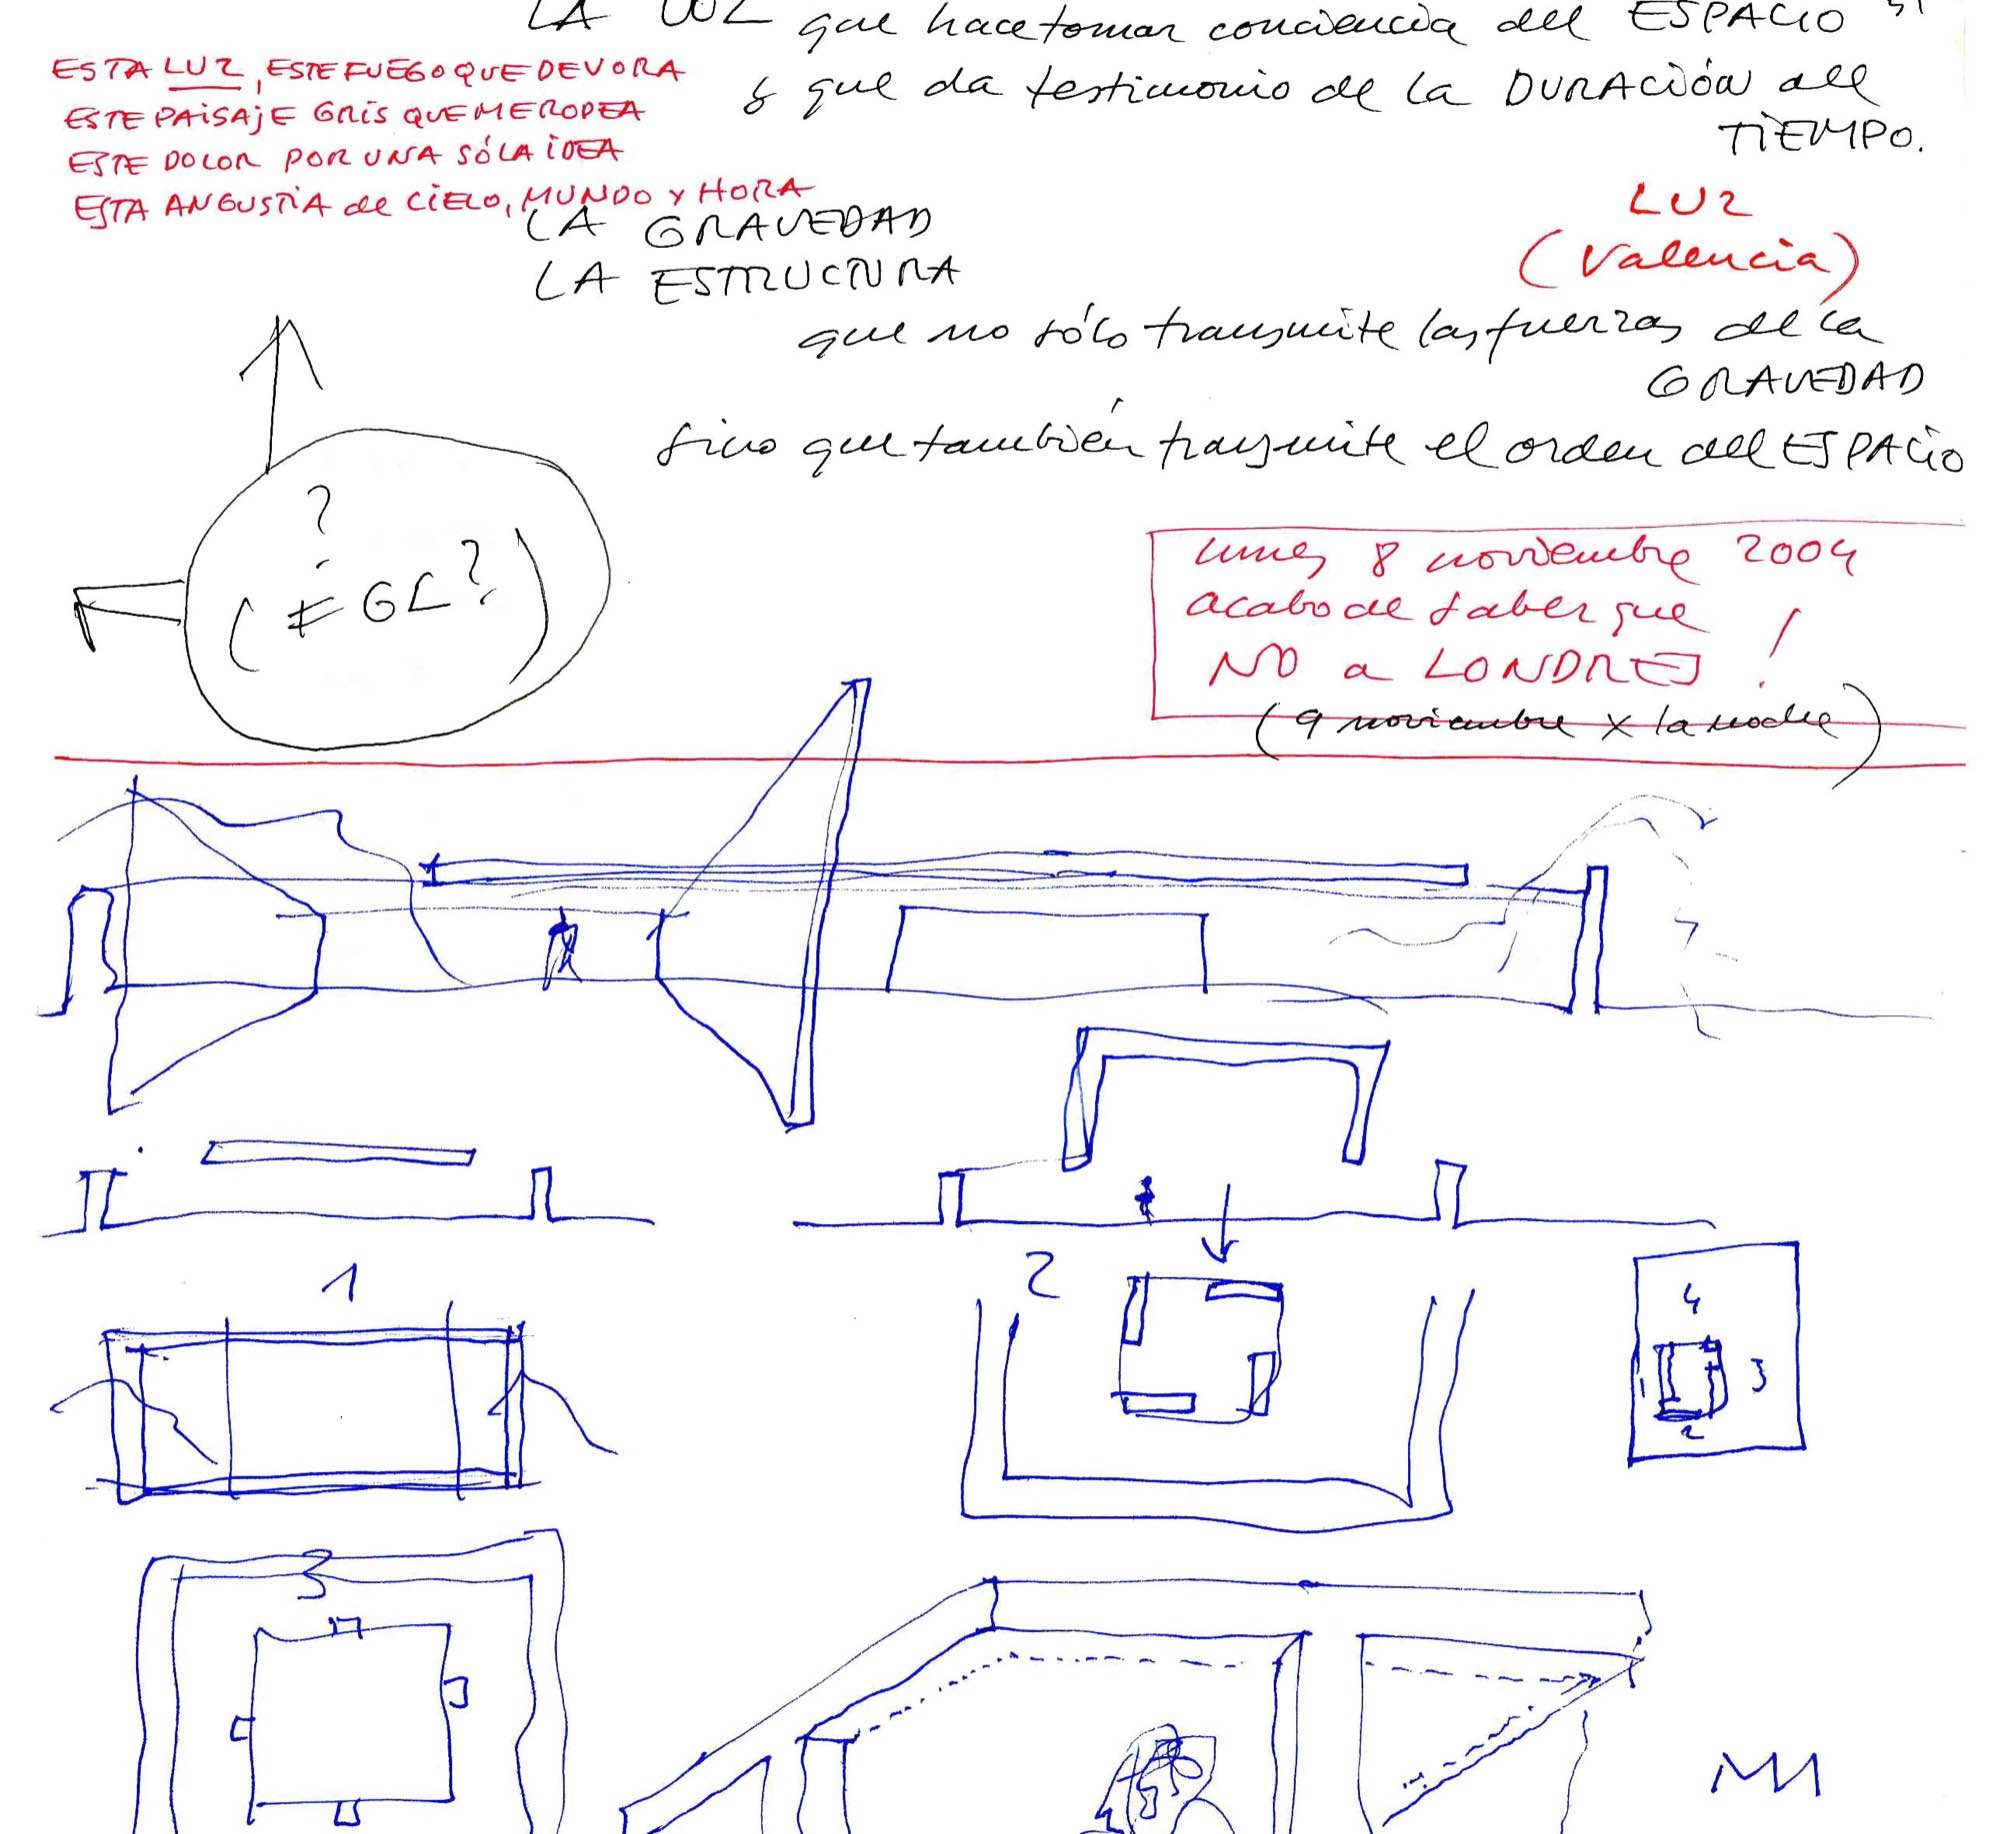 LA LUZ que hace tomar conciencia del ESPACIO
y que da testimonio de la DURACIÓN del
TIEMPO.
ESTA LUZ, ESTE FUEGO QUE DEVORA
ESTE PAISAJE GRIS QUE ME RODEA
ESTE DOLOR POR UNA SÓLA IDEA
ESTA ANGUSTIA de CIELO, MUNDO Y HORA
LUZ
(Valencia)
LA GRAVEDAD
LA ESTRUCTURA
que no sólo transmite las fuerzas de la
GRAVEDAD
sino que también transmite el orden del ESPACIO
?
(≠ GL?)
lunes 8 noviembre 2004
acabo de saber que
NO a LONDRES !
(9 noviembre x la noche)
1
2
4
3
2
3